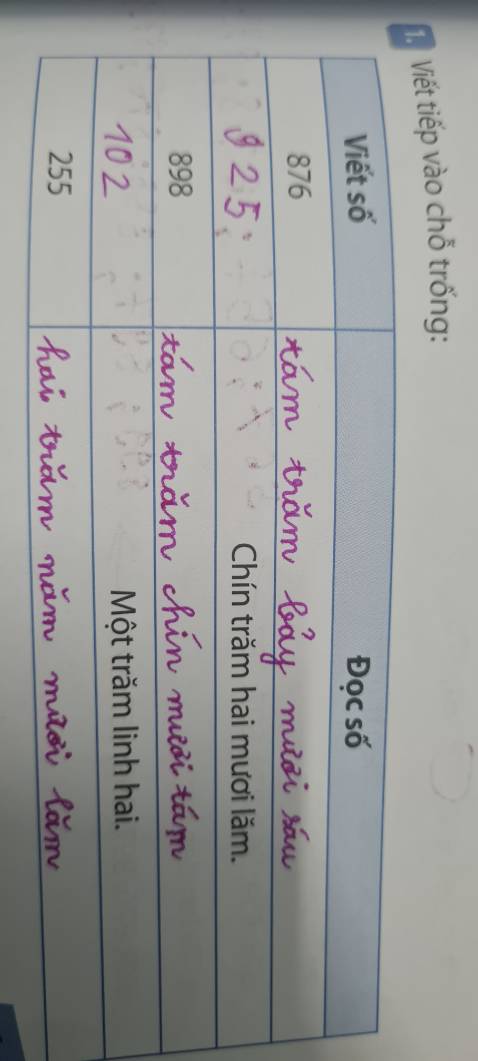 1. Viết tiếp vào chỗ trống:
Viết số Đọc số
876 tám trăm bảy mươi sáu
925 Chín trăm hai mươi lăm.
898 tám trăm chín mươi tám
102 Một trăm linh hai.
255 hai trăm năm mươi lăm